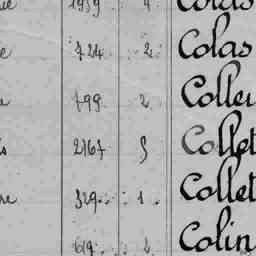 1939 4 Colas
e 724 2 Colas
799 2 Coller
s 2167 5 Collet
re 329 1 Collet
619 2 Colin